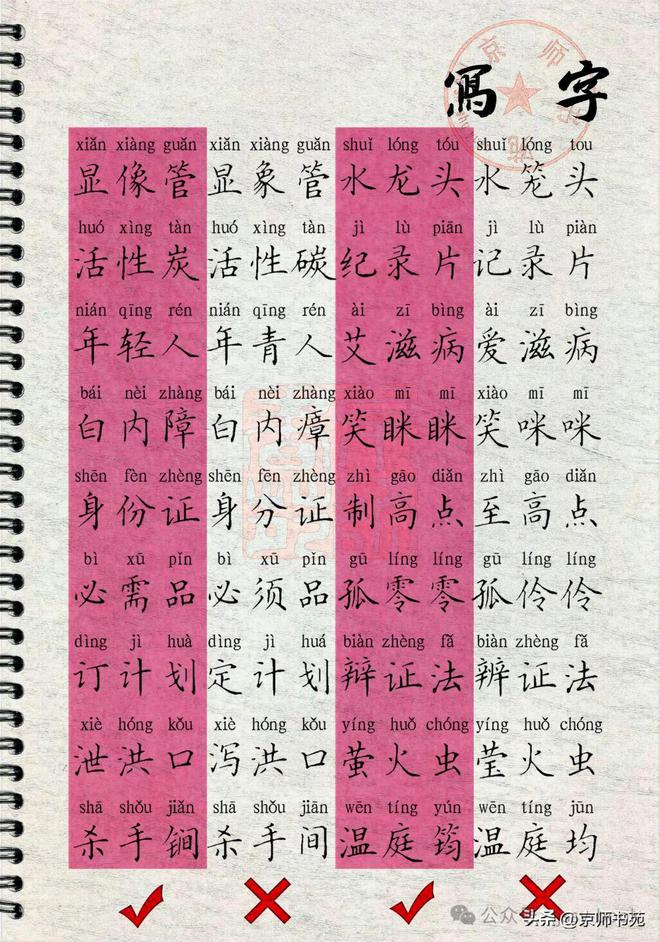 寫字
xiǎn xiàng guǎn xiǎn xiàng guǎn shuǐ lóng tóu shuǐ lóng tou
显像管显象管水龙头水笼头
huó xìng tàn huó xìng tàn jì lù piān jì lù piàn
活性炭活性碳纪录片记录片
nián qīng rén nián qīng rén ài zī bìng ài zī bìng
年轻人年青人艾滋病爱滋病
bái nèi zhàng bái nèi zhàng xiào mī mī xiào mī mī
白内障白内瘴笑眯眯笑咪咪
shēn fèn zhèng shēn fēn zhèng zhì gāo diǎn zhì gāo diǎn
身份证身分证制高点至高点
bì xū pǐn bì xū pǐn gū líng líng gū líng líng
必需品必须品孤零零孤伶伶
dìng jì huà dìng jì huá biàn zhèng fǎ biàn zhèng fǎ
订计划定计划辩证法辨证法
xiè hóng kǒu xiè hóng kǒu yíng huǒ chóng yíng huǒ chóng
泄洪口泻洪口萤火虫莹火虫
shā shǒu jiǎn shā shǒu jiān wēn tíng yún wēn tíng jūn
杀手锏杀手间温庭筠温庭均
公众
头条@京师书苑